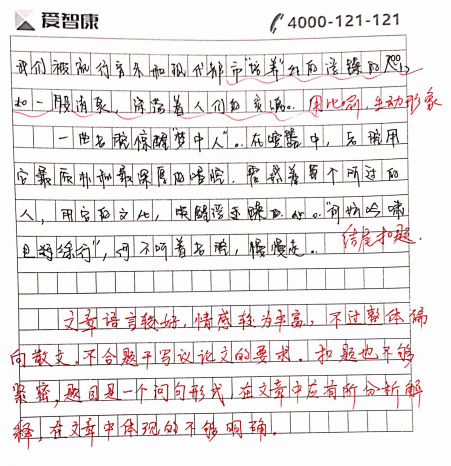 爱智康 4000-121-121
我们被流行音乐和现代都市"培养"出的浮躁的
如一股清泉，滋养着人们的心田。用比喻，生动形象
一曲老腔惊醒"梦中人"。在喧嚣中，老腔用
它最质朴和最深厚的唱腔，震撼着每个听过的
人，用它的文化，唤醒浮躁的心。"何妨吟啸
且徐行"，何不听着老腔，慢慢走。结尾扣题.
文章语言较好，情感较为丰富，不过整体偏
向散文，不合题干写议论文的要求。扣题也不够
紧密，题目是一个问句形式，在文章中应有所分析解
释，在文章中体现的不够明确。